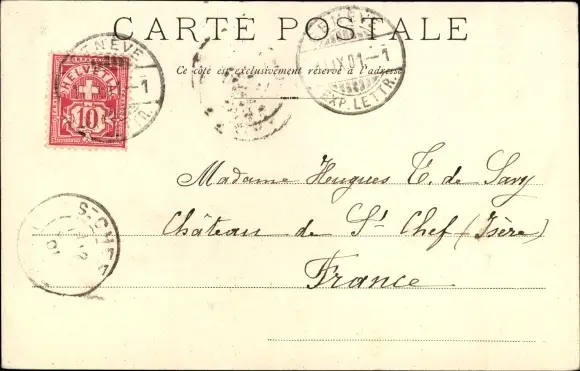 CARTE POSTALE
Ce côté est exclusivement réservé à l'adresse
HELVETIA
10
GENÈVE
1
GENÈVE
IX01-1
EXP. LETTR.
Madame Hugues T. de Savy
Château de St Chef (Isère)
France
01